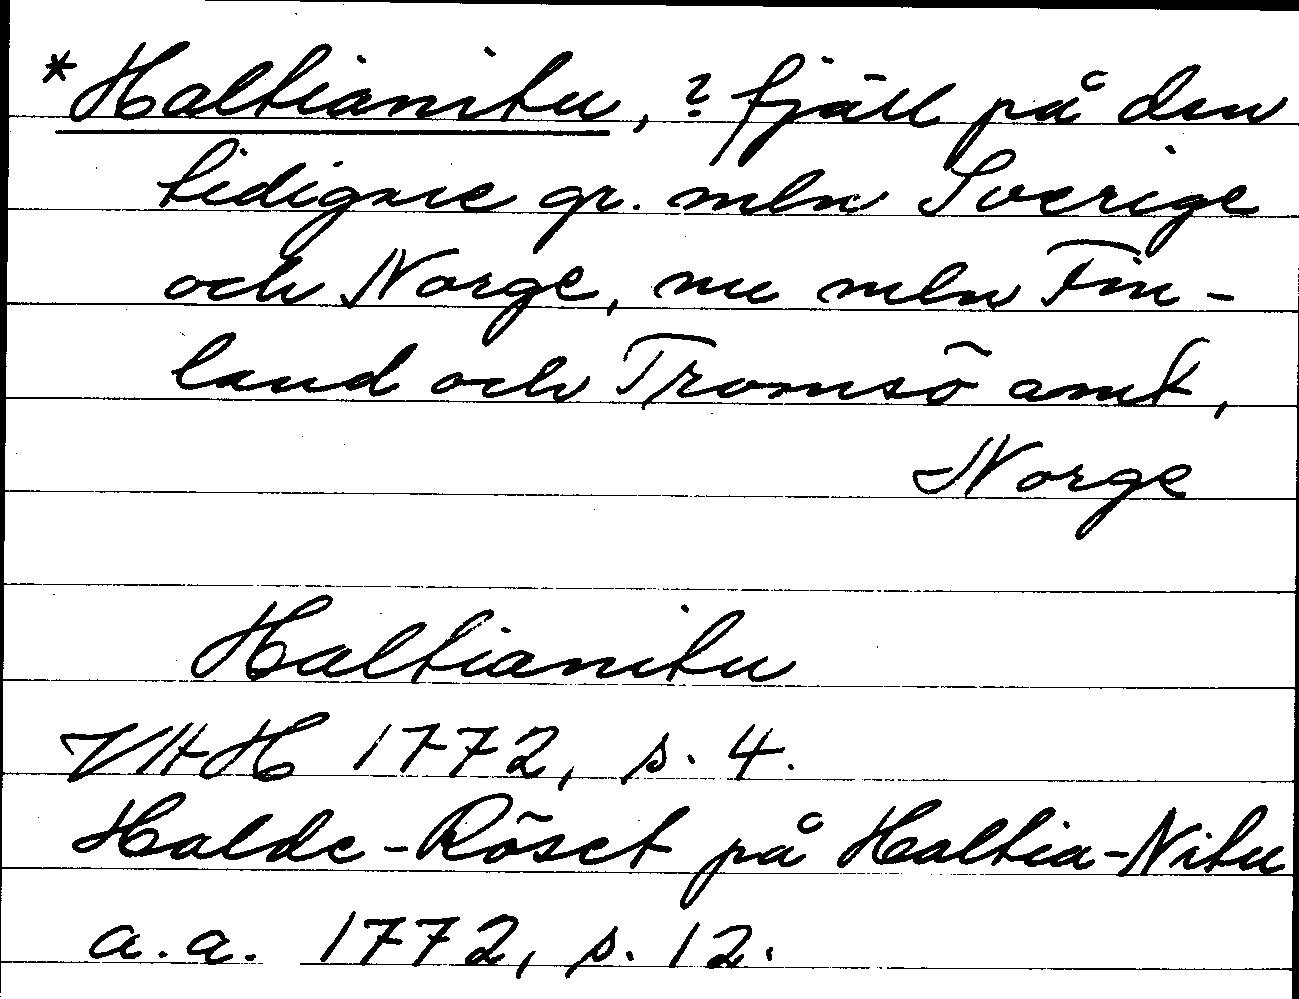 *Haltianitu, ? fjäll på den
tidigare gr. mln Sverige
och Norge, nu mln Fin-
land och Tromsö amt,
Norge
Haltianitu
VHH 1772, s. 4.
Halde-Röset på Haltia-Nitu
a.a. 1772, s. 12.